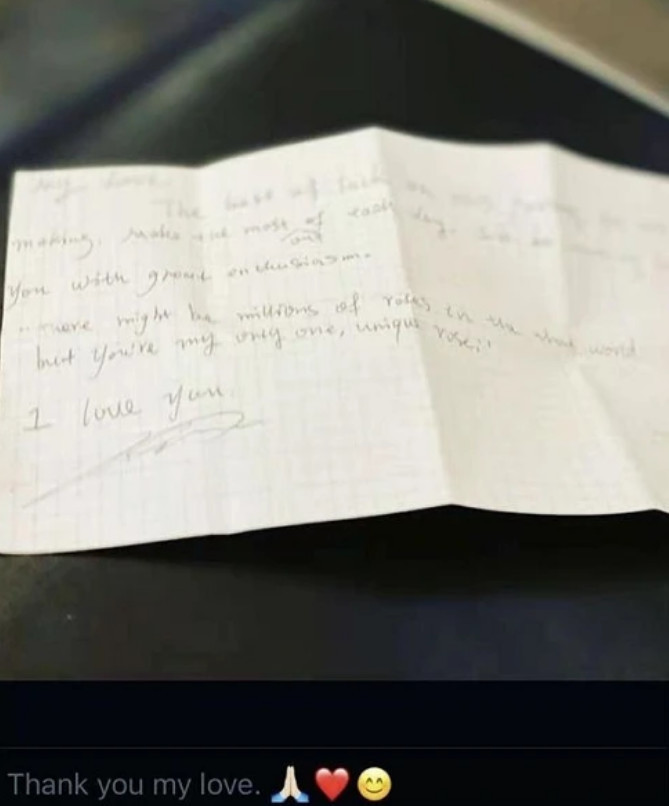 My Love
The best of luck on
making. Make the most out of each day.
you with great enthusiasm.
"There might be millions of roses in the whole world
but you're my only one, unique rose"
I love you
Thank you my love. 🙏🏻❤️😊